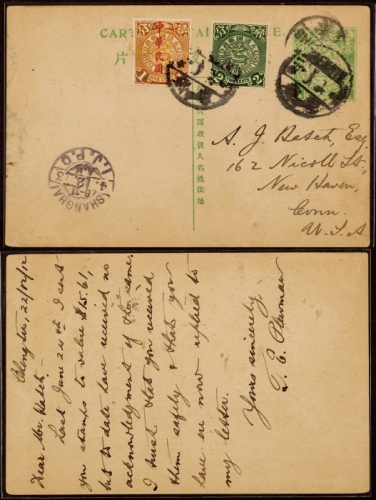 CARTE
中華民國
1
2
片
A. J. Hatch, Esq.
162 Nicoll St,
New Haven,
Conn.
U.S.A
SHANGHAI
I.J.P.O
Chengtu, 22/02/12
Dear Mr. Hatch:
Last June 24th I sent
you stamps to value $15.61,
but to date have received no
acknowledgment of the same.
I trust that you received
them safely & that you
have ere now replied to
my letter.
Yours sincerely,